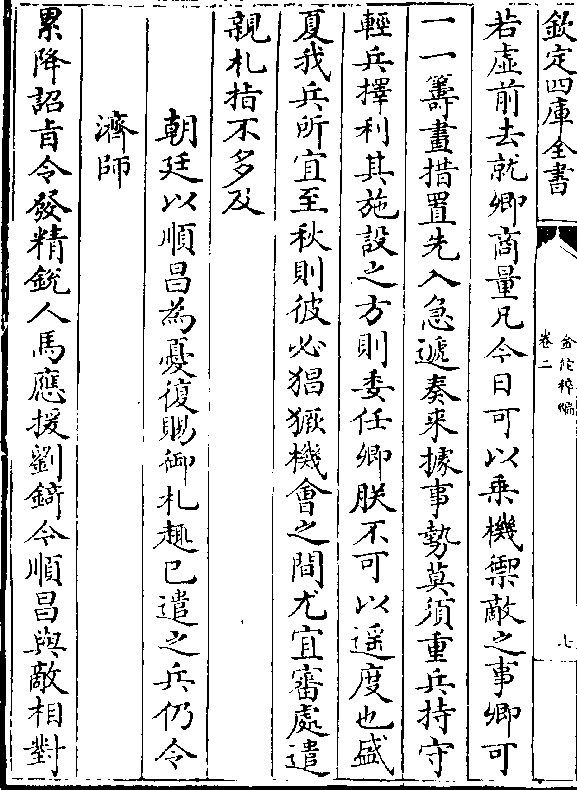 欽定四庫全書
金佗稡編
卷二
七
若虛前去就卿商量凡今日可以乗機禦敵之事卿可
一一籌畫措置先入急遞奏来據事勢莫須重兵持守
輕兵擇利其施設之方則委任卿朕不可以遥度也盛
夏我兵所宜至秋則彼必猖獗機會之間尤宜審處遣
親札指不多及
朝廷以順昌為憂復賜御札趣已遣之兵仍令
濟師
累降詔㫖令發精鋭人馬應援劉錡今順昌與敵相對